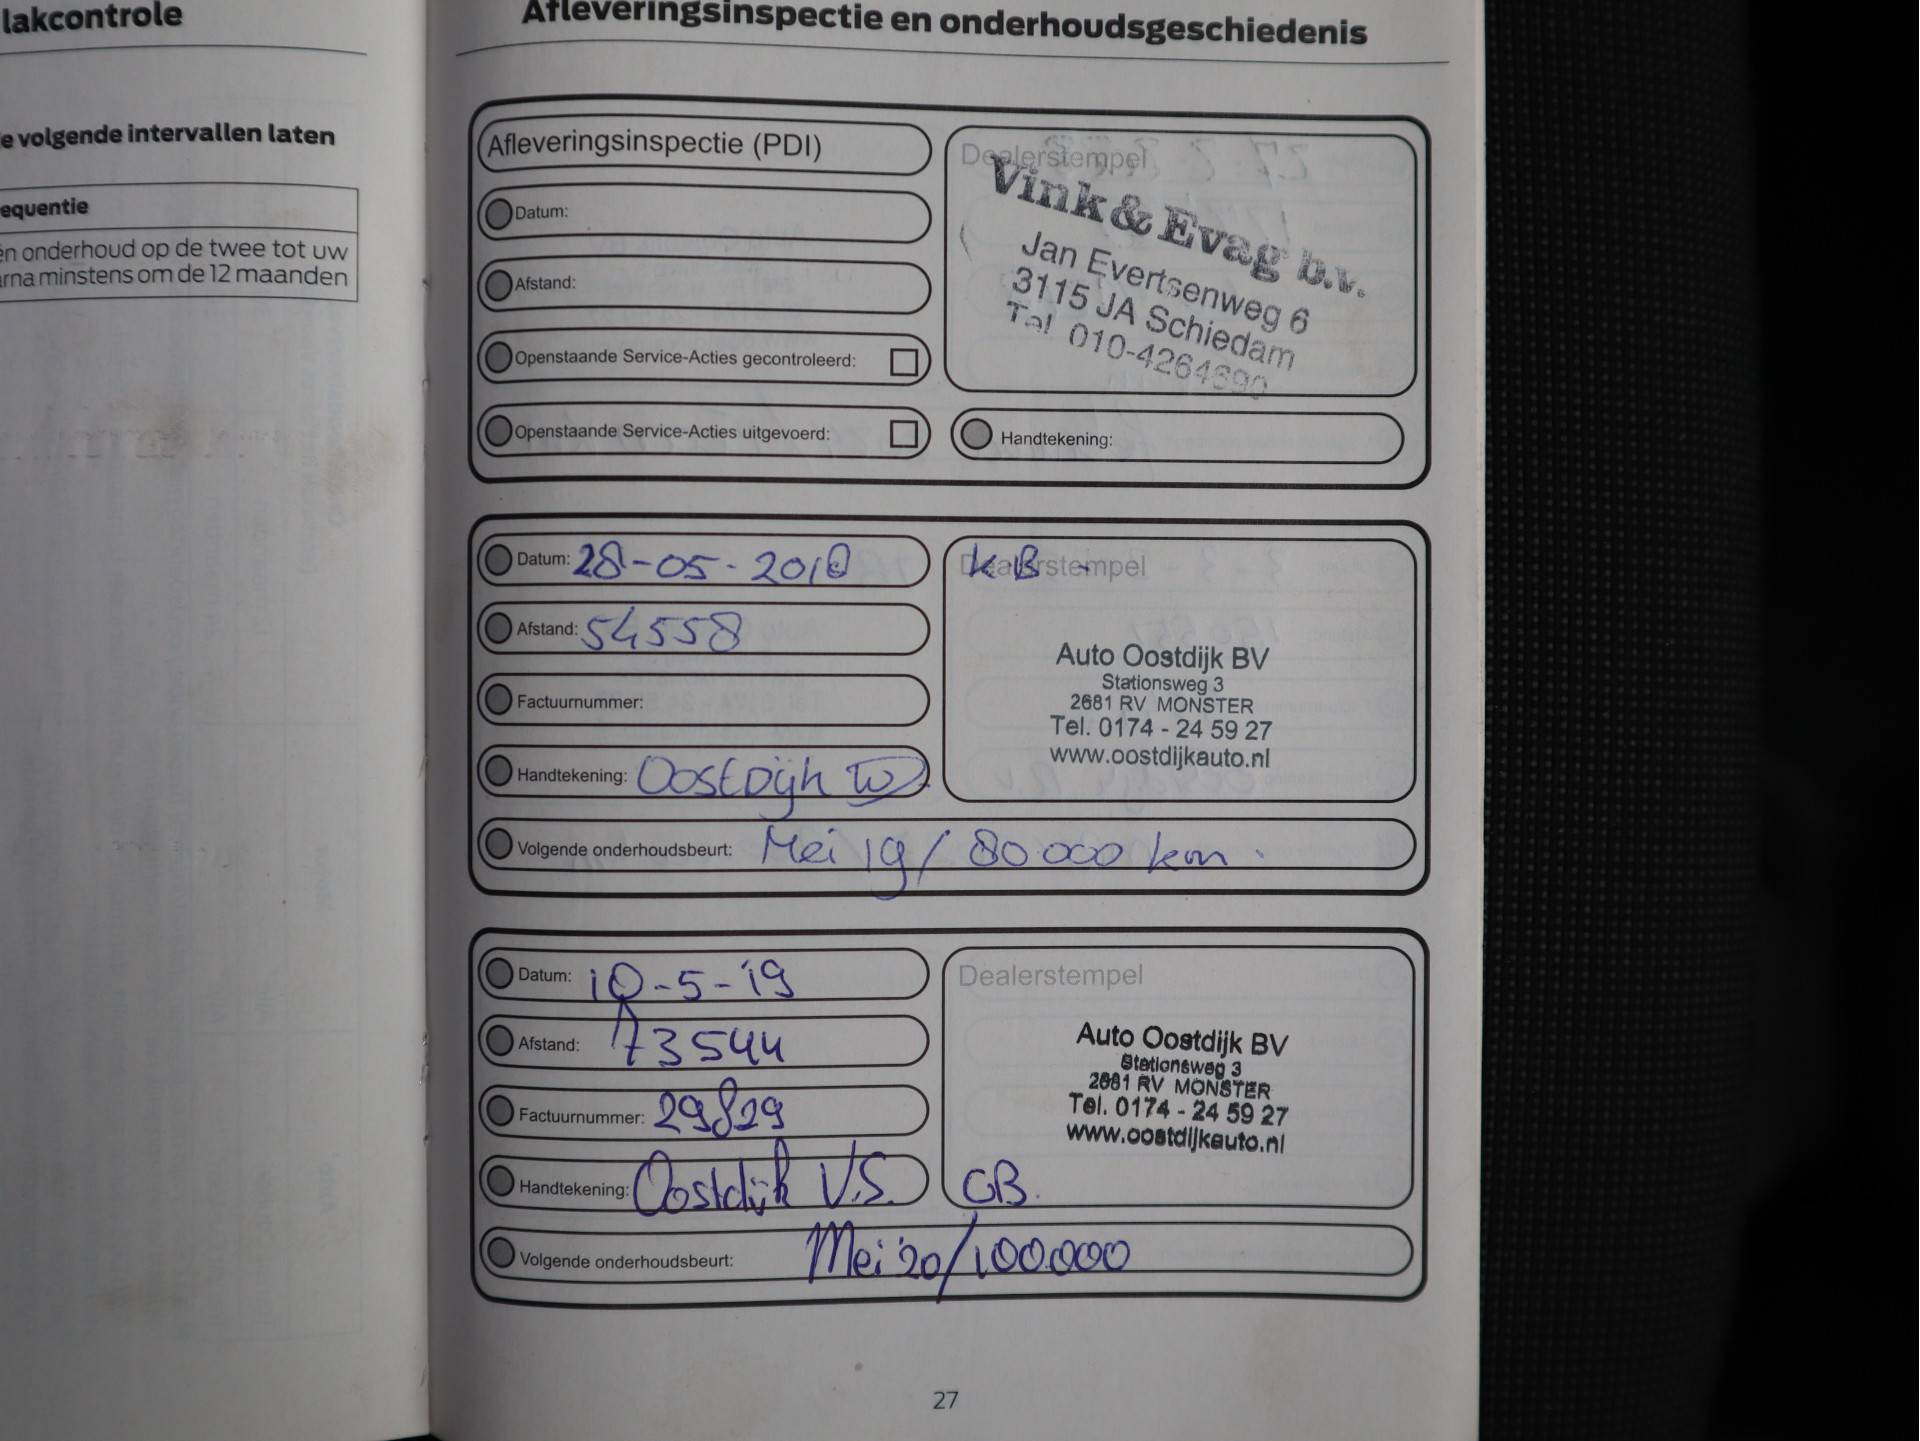 lakcontrole
e volgende intervallen laten
equentie
én onderhoud op de twee tot uw
arna minstens om de 12 maanden
Afleveringsinspectie en onderhoudsgeschiedenis
Afleveringsinspectie (PDI)
Datum:
Afstand:
Openstaande Service-Acties gecontroleerd:
Openstaande Service-Acties uitgevoerd:
Dealerstempel
Vink & Evag b.v.
Jan Evertsenweg 6
3115 JA Schiedam
Tel. 010-4264690
Handtekening:
Datum: 28-05-2018
Afstand: 54558
Factuurnummer:
Handtekening: Oostdijk
Dealerstempel
KB -
Auto Oostdijk BV
Stationsweg 3
2681 RV MONSTER
Tel. 0174 - 24 59 27
www.oostdijkauto.nl
Volgende onderhoudsbeurt: Mei 19/ 80.000 km.
Datum: 10-5-'19
Afstand: 73544
Factuurnummer: 29829
Handtekening: Oostdijk V.S.
Dealerstempel
Auto Oostdijk BV
Stationsweg 3
2681 RV MONSTER
Tel. 0174 - 24 59 27
www.oostdijkauto.nl
GB.
Volgende onderhoudsbeurt: Mei '20/100.000
27